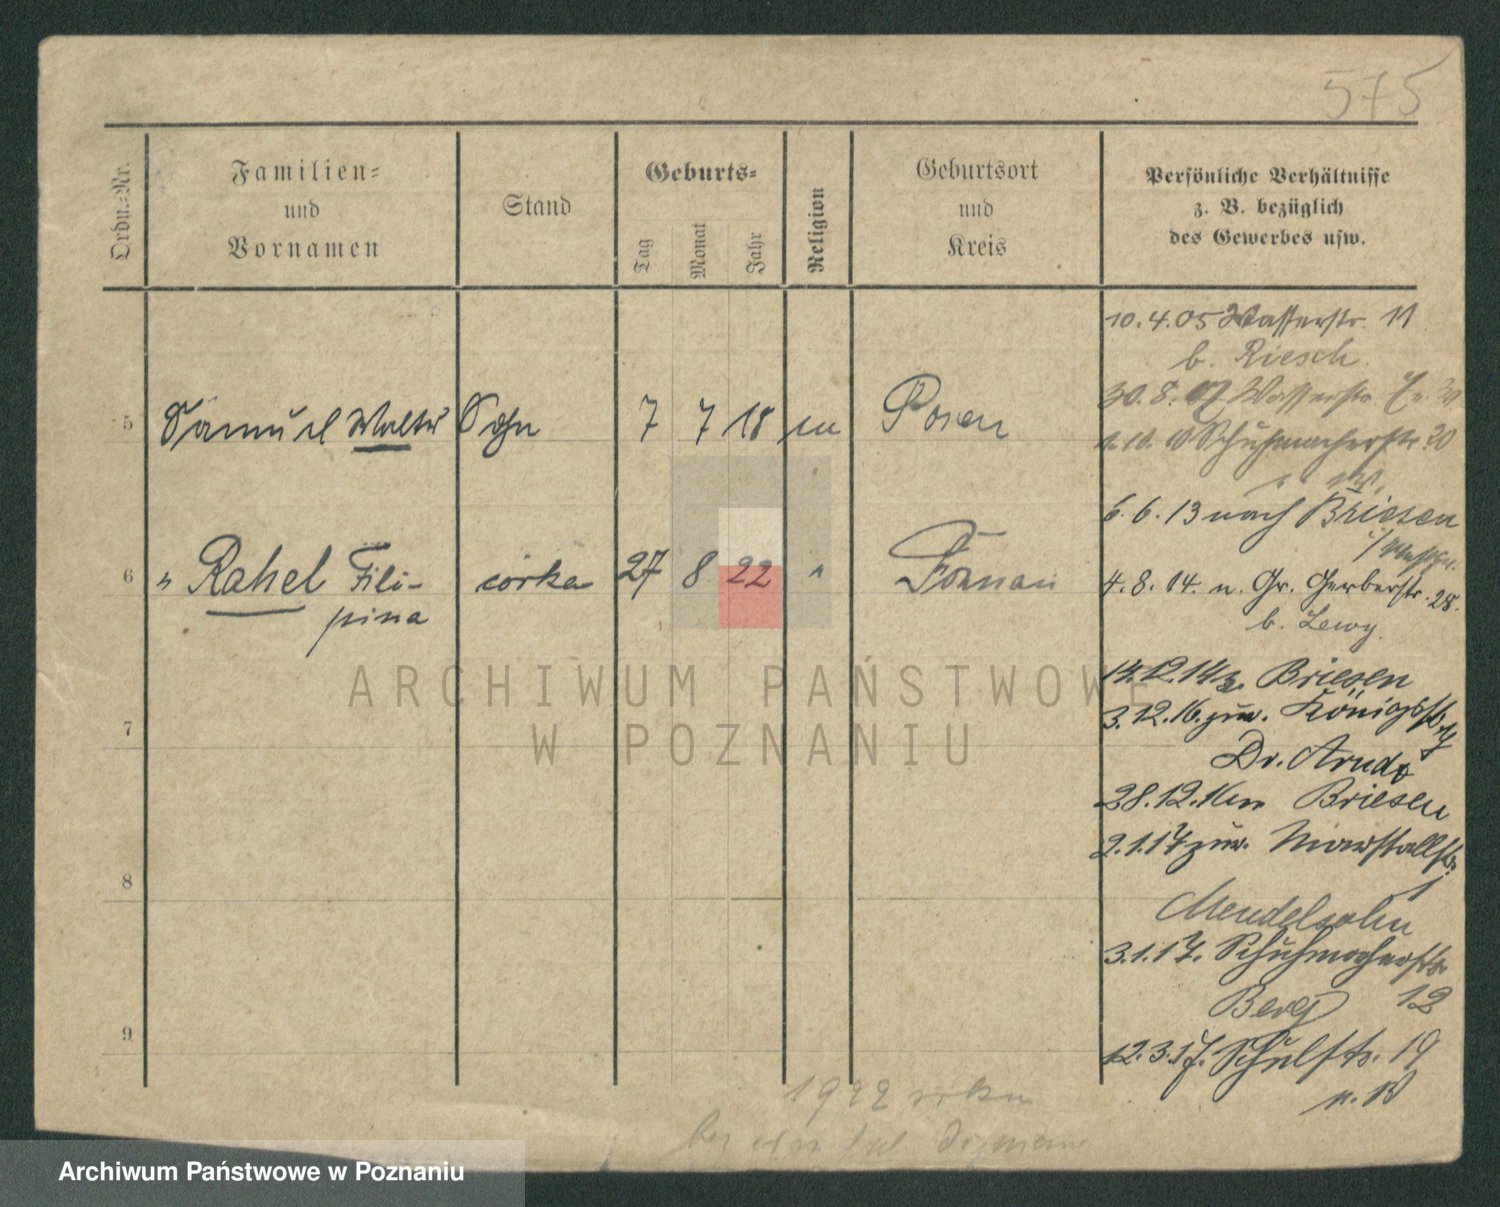 575
Ordn.-Nr.
Familien-
und
Vornamen
Stand
Geburts-
Tag
Monat
Jahr
Religion
Geburtsort
und
Kreis
Persönliche Verhältnisse
z. B. bezüglich
des Gewerbes usw.
5 Samuel Walter Sohn 7 7 18 m Posen
6 " Rahel Fili- córka 27 8 22 " Poznań
pina
7
8
9
10.4.05 Wasserstr. 11
b. Riesch
30.8.07 Wasserstr.
1.10.10 Schuhmacherstr. 20
6.6.13 nach Briesen
4.8.14. n. Gr. Gerberstr. 28.
b. Lewy
14.12.14 Briesen
3.12.16. zur. Königstr.
Dr. Arndt
28.12.16 n. Briesen
2.1.17 zur. Marstallstr.
Mendelsohn
3.1.17. Schuhmacherstr.
Berg 12
12.3.17. Schulstr. 19
n. W
1922
ARCHIWUM PAŃSTWOWE
W POZNANIU
Archiwum Państwowe w Poznaniu